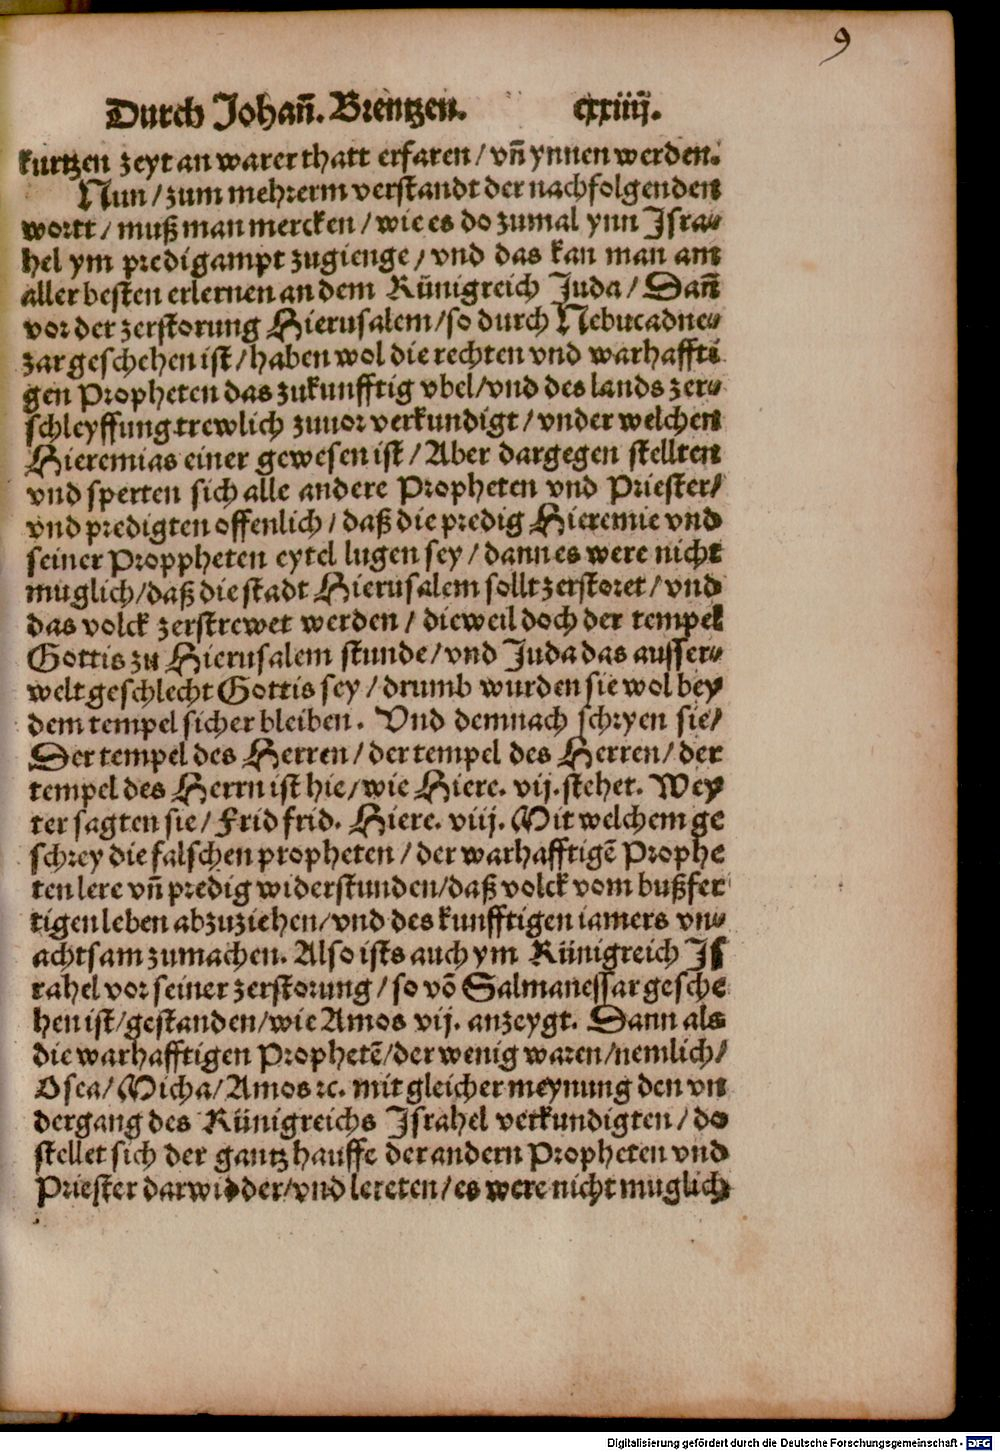 9
Durch Johañ. Brentzen. cxxiiij.
kurtzen zeyt an warer thatt erfaren / vñ ynnen werden.
Nun / zum mehrerm verstandt der nachfolgenden
wortt / muß man mercken / wie es do zumal ynn Isra-
hel ym predigampt zugienge / vnd das kan man am
aller besten erlernen an dem Künigreich Juda / Dañ
vor der zerstorung Hierusalem / so durch Nebucadne-
zar geschehen ist / haben wol die rechten vnd warhaffti
gen Propheten das zukunfftig vbel / vnd des lands zer-
schleyffung trewlich zuuor verkundigt / vnder welchen
Hieremias einer gewesen ist / Aber dargegen stellten
vnd sperten sich alle andere Propheten vnd Priester /
vnd predigten offenlich / daß die predig Hieremie vnd
seiner Proppheten eytel lugen sey / dann es were nicht
muglich / daß die stadt Hierusalem sollt zerstoret / vnd
das volck zerstrewet werden / dieweil doch der tempel
Gottis zu Hierusalem stunde / vnd Juda das ausser-
welt geschlecht Gottis sey / drumb wurden sie wol bey
dem tempel sicher bleiben. Vnd demnach schryen sie /
Der tempel des Herren / der tempel des Herren / der
tempel des Herrn ist hie / wie Hiere. vij. stehet. Wey
ter sagten sie / Frid frid. Hiere. viij. Mit welchem ge
schrey die falschen propheten / der warhafftigẽ Prophe
ten lere vñ predig widerstunden / daß volck vom bußfer
tigen leben abzuziehen / vnd des kunfftigen iamers vn-
achtsam zumachen. Also ists auch ym Künigreich Is
rahel vor seiner zerstorung / so võ Salmanessar gesche
hen ist / gestanden / wie Amos vij. anzeygt. Dann als
die warhafftigen Prophetẽ / der wenig waren / nemlich /
Osea / Micha / Amos ⁊c. mit gleicher meynung den vn
dergang des Künigreichs Israhel verkundigten / do
stellet sich der gantz hauffe der andern Propheten vnd
Priester darwidder / vnd lereten / es were nicht muglich
Digitalisierung gefördert durch die Deutsche Forschungsgemeinschaft - DFG